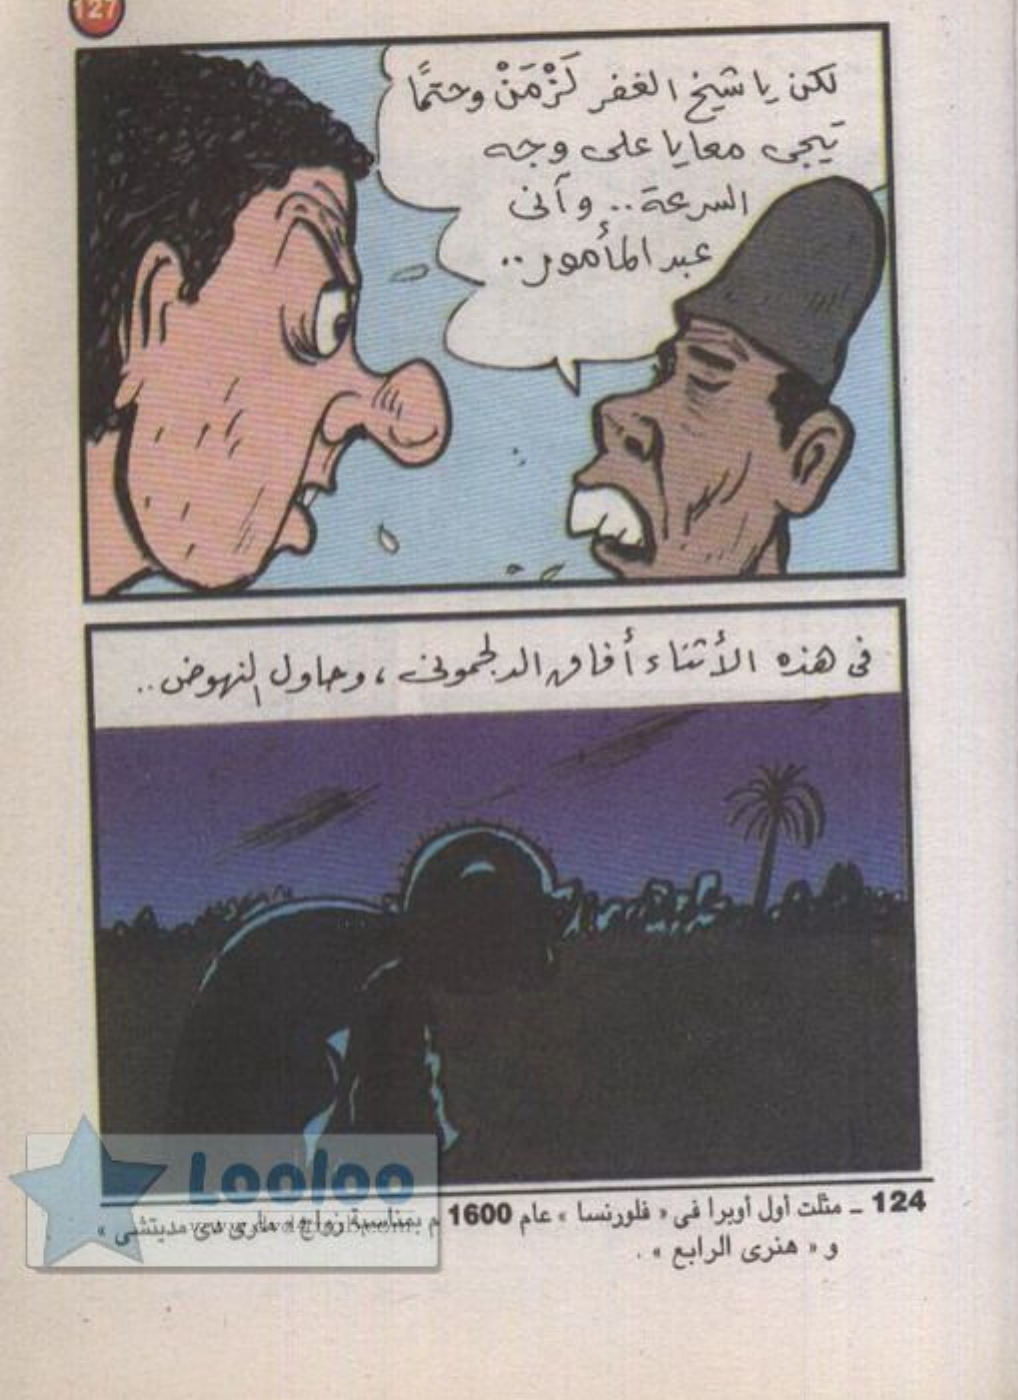 127
لكن يا شيخ الغفر لَزْمَنْ وحتمًا
تيجى معايا على وجه
السرعة.. وآنى
عبد المأمور..
فى هذه الأثناء أفاق الدلجمونى، وحاول النهوض..
124 ـ مثلت أول أوبرا فى « فلورنسا » عام 1600 م بمناسبة زواج « مارى دى مديتشى »
و « هنرى الرابع » .
Looloo